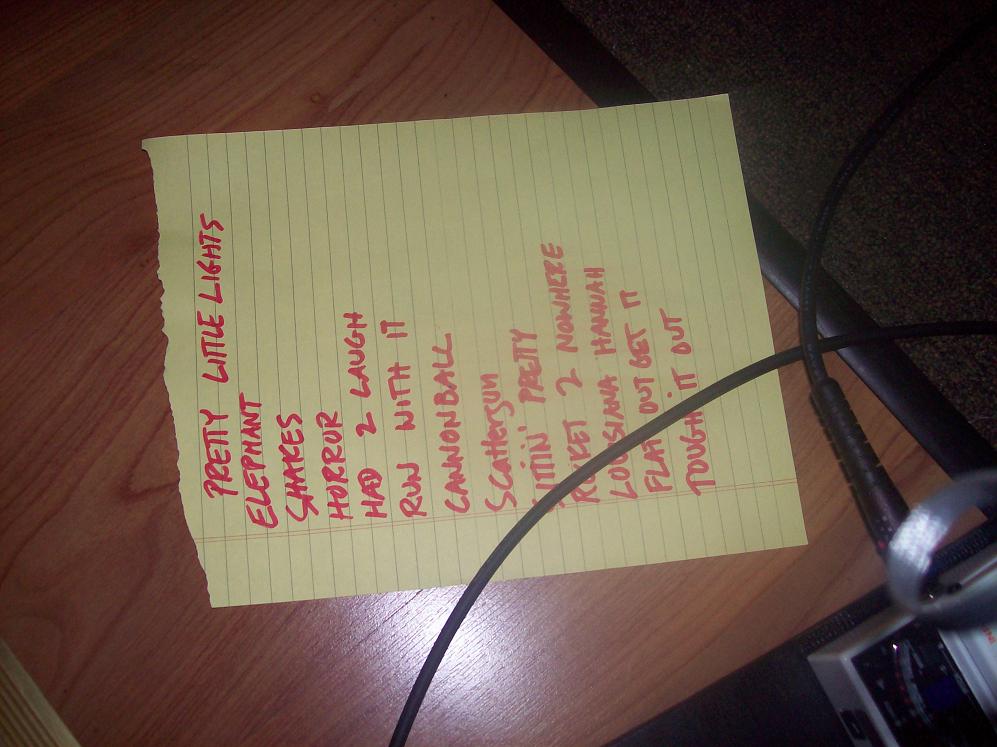 PRETTY LITTLE LIGHTS
ELEPHANT
SHAKES
HORROR
HAD 2 LAUGH
RUN WITH IT
CANNONBALL
SCATTERGUN
SITTIN' PRETTY
ROCKET 2 NOWHERE
LOUISIANA HANNAH
FLAT OUT GET IT
TOUGH IT OUT